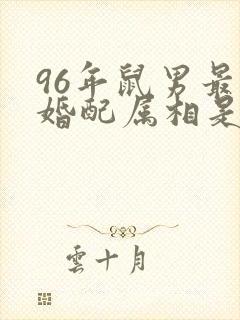 96年鼠男最
婚配属相是
雲十月